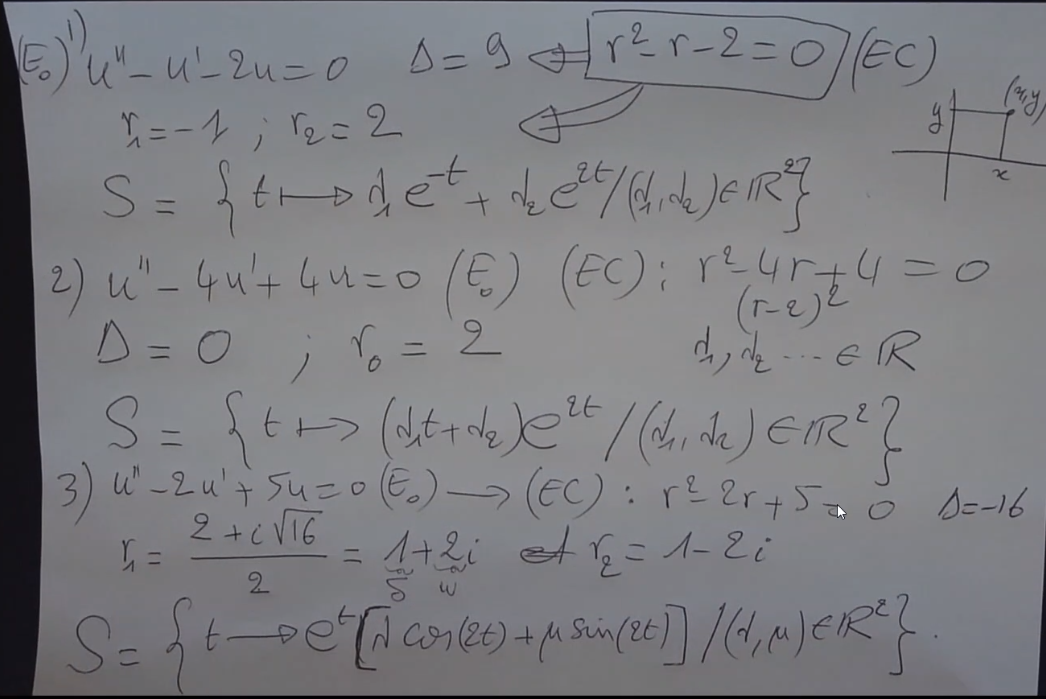 (E₀) 1) u'' - u' - 2u = 0 Δ = 9 ⇐ r² - r - 2 = 0 (EC)
r₁ = -1 ; r₂ = 2
y (x,y)
x
S = { t ⟼ λ₁e⁻ᵗ + λ₂e²ᵗ / (λ₁, λ₂) ∈ ℝ² }
2) u'' - 4u' + 4u = 0 (E₀) (EC) : r² - 4r + 4 = 0
(r-2)²
Δ = 0 ; r₀ = 2 λ₁, λ₂ ... ∈ ℝ
S = { t ⟼ (λ₁t + λ₂)e²ᵗ / (λ₁, λ₂) ∈ ℝ² }
3) u'' - 2u' + 5u = 0 (E₀) → (EC) : r² - 2r + 5 = 0 Δ = -16
r₁ = (2 + i√16)/2 = 1 + 2i et r₂ = 1 - 2i
δ ω
S = { t → eᵗ [λ cos(2t) + μ sin(2t)] / (λ, μ) ∈ ℝ² }.